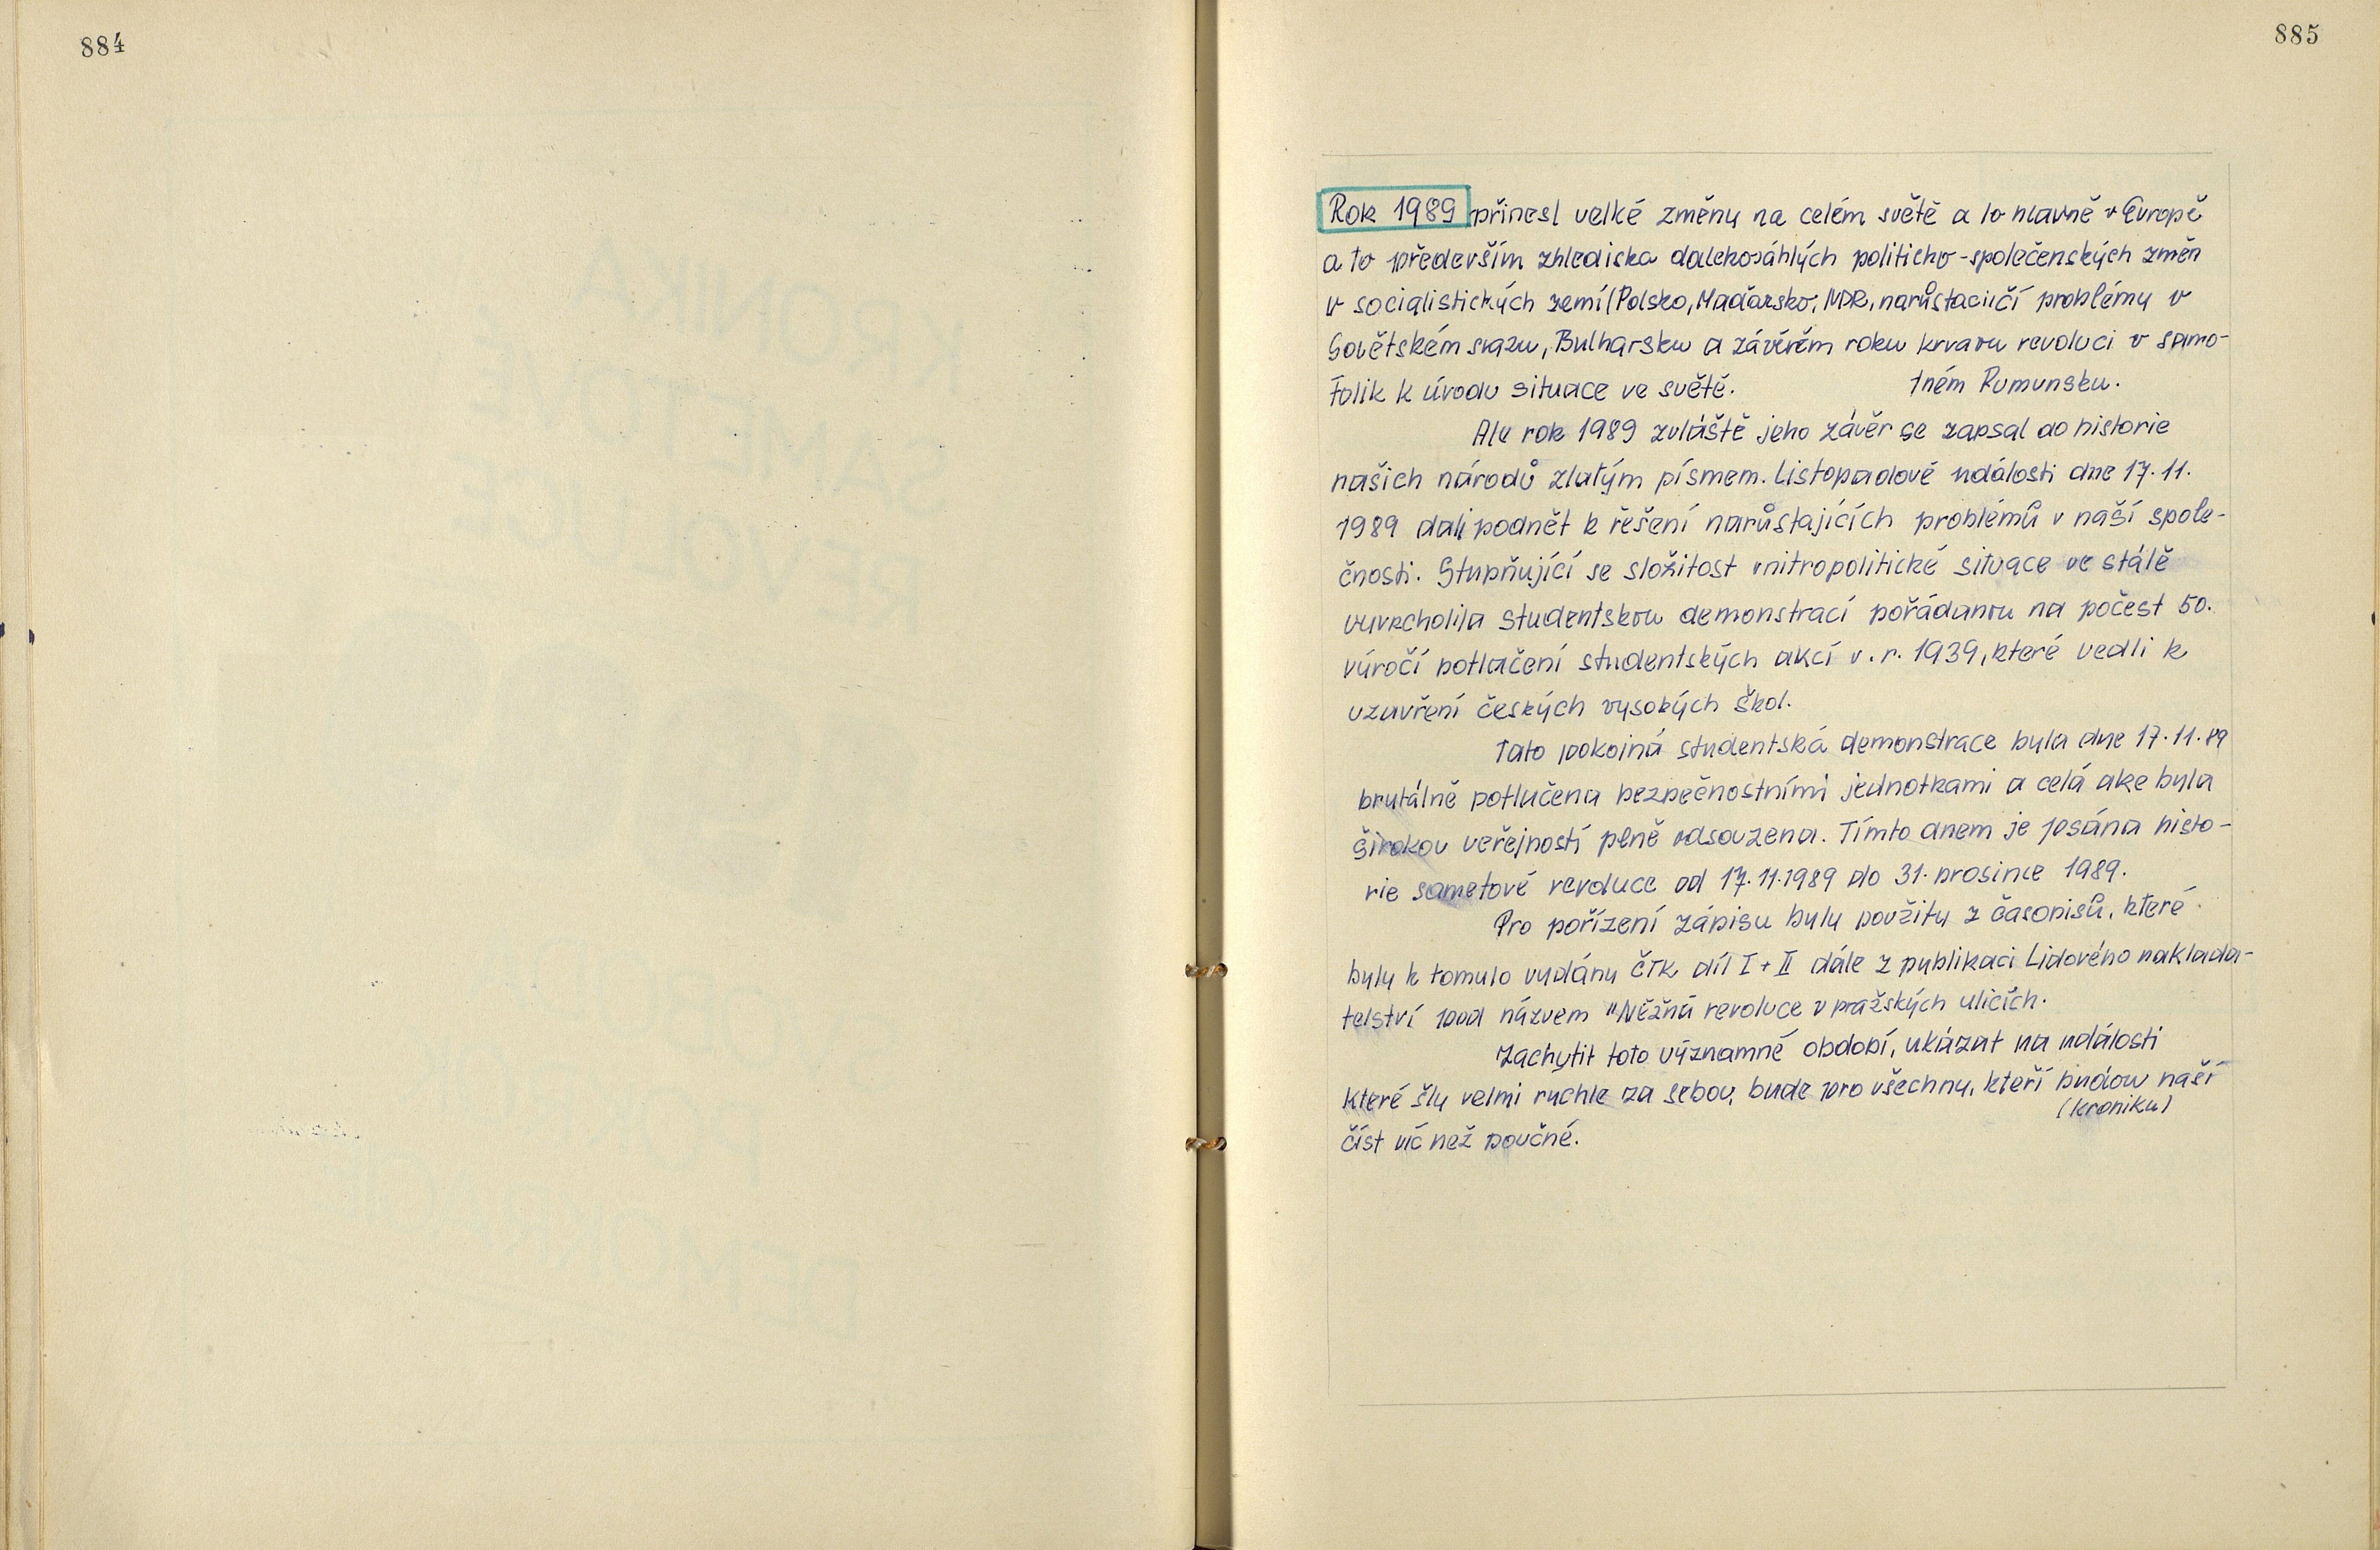 884
885
Rok 1989 přinesl velké změny na celém světě a to hlavně v Evropě
a to především zhlediska dalekosáhlých politicko-společenských změn
v socialistických zemí (Polsko, Maďarsko, NDR, narůstacijčí problémy v
Sovětském svazu, Bulharsku a závěrém roku krvavu revoluci v samo-
tném Rumunsku.
Tolik k úvodu situace ve světě.
Ale rok 1989 zvláště jeho závěr se zapsal do historie
našich národů zlatým písmem. Listopadové události dne 17. 11.
1989 dali podnět k řešení narůstajících problémů v naší spole-
čnosti. Stupňující se složitost vnitropolitické situace ve stálě
vyvrcholila studentskou demonstrací pořádanou na počest 50.
výročí potlačení studentských akcí v. r. 1939, které vedli k
uzavření českých vysokých škol.
Tato pokojná studentská demonstrace byla dne 17. 11. 89
brutálně potlučena bezpečnostními jednotkami a celá akce byla
širokou veřejností plně odsouzena. Tímto dnem je psána histo-
rie sametové revoluce od 17. 11. 1989 do 31. prosince 1989.
Pro pořízení zápisu byly použity z časopisů, které
byly k tomuto vydány ČTK díl I + II dále z publikaci Lidového naklada-
telství pod názvem "Něžná revoluce v pražských ulicích.
Zachytit toto významné období, ukázat na události
které šly velmi rychle za sebou, bude pro všechny, kteří budou naší
(kroniku)
číst víc než poučné.